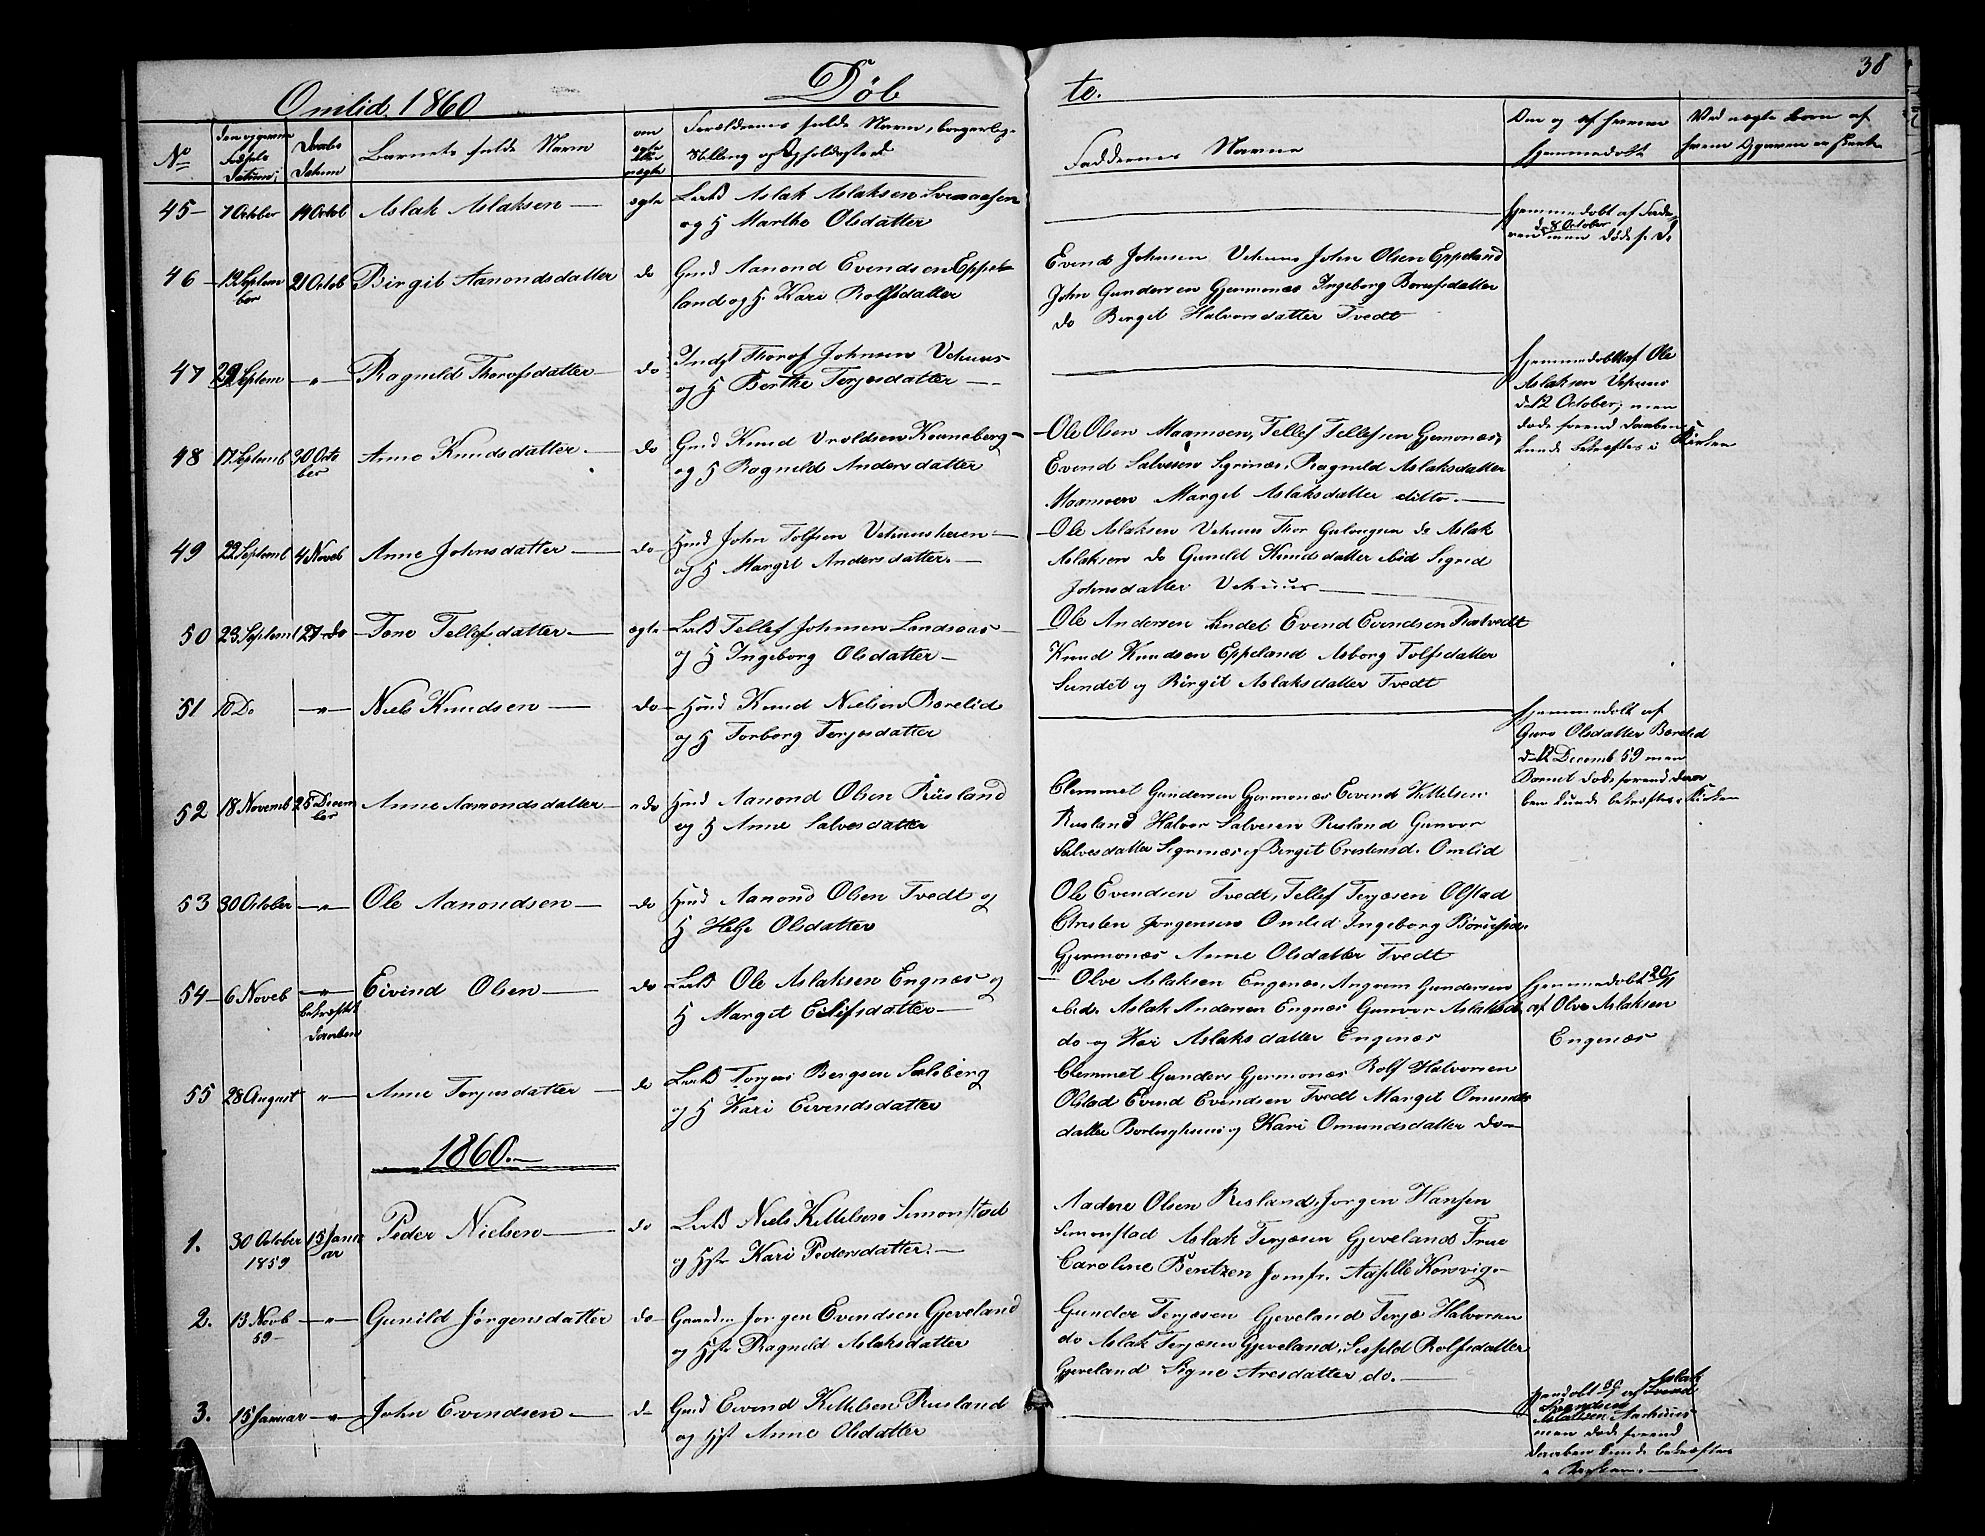 38
Omlid 1860
Døb
te.
No
Fødsels Datum
Daabs Datum
Barnets fulde Navn
om ægte eller uægte
Forældrenes fulde Navn, borgerlige
Stilling og Opholdssted
Faddernes Navne
Om og af hvem
hjemmedøbt
Ved uægte Børn af
hvem Opgaven er skeet
45 7 October 14 Octob Aslak Aslaksen ægte Leilb Aslak Aslaksen
og H Marthe Olsdatter
hjemmedøbt af Fade
d 8 October
ren men døde
46 19 Septem ber 21 Octob Birgit Aanondsdatter do Gmd Aanond Evendsen Eppe
land og H. Kari Rolfsdatter
Evend Johnsen Vehuus John Olsen Eppeland
John Gundersen Gjermonæs Ingeborg Borufsdatter
do Berget Halvorsdatter Tvedt
47 29 Septem " Ragnild Thorofsdatter do Indst Thorof Johnsen Vehuus
og H Berthe Terjesdatter
hjemmedøbt af Ole
Aslaksen Vehuus
d 12 October, men
døde forend Daaben
kunde bekræftes i Kirken
48 17 Septemb 20 Octo ber Anne Knudsdatter do Gmd Knud Uroldsen Kraneberg
og H Ragnild Andersdatter
Ole Olsen Maamoen, Tellef Tellefsen Gjermonæs,
Evend Salvesen Sigrinæs, Ragnild Aslaksdatter
Maamoen Margit Aslaksdatter ditto
49 22 Septemb 4 Noveb Anne Johnsdatter do Hmd John Tolfsen Vehuusheien
og H Margit Andersdatter
Ole Aslaksen Vehuus Thor do Aslak
Aslaksen do Gunild Knudsdatter ibid Sigrid
Johnsdatter Vehuus
50 23 Septemb 27 do Tone Tellefsdatter ægte Leilb Tellef Johnsen Landsaas
og H Ingeborg Olsdatter
Ole Andersen Sundet Evend Evendsen
Knud Knudsen Eppeland Asborg Tolfsdatter
Sundet og Birgit Aslaksdatter Tvedt
51 10 Do " Niels Knudsen do Hmd Knud Nielsen Borelid
og H Torborg Terjesdatter
hjemmedøbt af
Guro Olsdatter Borelid
d 12 Decemb 59 men
Barnet døde forend Daa
ben kunde bekræftes i Kirken
52 18 Novemb 25 Decem ber Anne Aamondsdatter do Hmd Aanond Olsen Rüsland
og H Anne Salvesdatter
Clemmet Gundersen Gjermonæs Eivend Kittelsen
Rusland Halvor Salvesen Rusland Gunvor
Salvesdatter Sigrinæs og Birgit Crestensd. Omlid
53 30 October " Ole Aanondsen do Hmd Aanond Olsen Tvedt og
H Helje Olsdatter
Ole Evendsen Tvedt, Tellef Terjesen Olstad
Christen Jorgensen Omlid Ingeborg Börufsda
Gjermonæs Anne Olsdatter Tvedt
54 6 Noveb " bekræftet Daaben Eivind Olsen do Leilb Ole Aslaksen Engnæs og
H Margit Eilifsdatter
Olve Aslaksen Engenæs, Angrim Gundersen
ibid. Aslak Andersen Engnæs Gunvor Aslaksd.
do og Kari Aslaksdatter Engenæs
hjemmedøbt 20/11
af Olve Aslaksen
Engenæs
55 28 August " Anne Terjesdatter do Leilb Torjus Bergsen Salsberg
og H Kari Eivendsdatter
Clemmet Gunders Gjermonæs Rolf Halvorsen
Olstad Evend Evendsen Tvedt Margit Omunds
datter og Kari Omundsdatter do
1860.
1. 30 October 1859 15 Janu ar Peder Nielsen do Leilb Niels Kittelsen Simonstad
og Hst Kari Pedersdatter.
Aadne Olsen Rusland, Jorgen Hansen
Simonstad Aslak Terjesen Gjeveland Frue
Caroline Berntzen Jomfr.
2. 13 Novb 59 " Gunild Jørgensdatter do Gaardm Jorgen Evendsen Gjeveland
og Hst Ragnild Aslaksdatter
Gunder Terjesen Gjeveland Terje Halvorsen
do Aslak Terjesen Gjeveland, Rolfsdatter
Gjeveland Signe Aresdatter do.
3. 15 Januar " John Evendsen do Gmd Eivend Kittelsen Rusland
og Hst Anne Olsdatter
Aslak
Aslaksen
men døde forend
Daaben kunde bekræftes
i Kirken